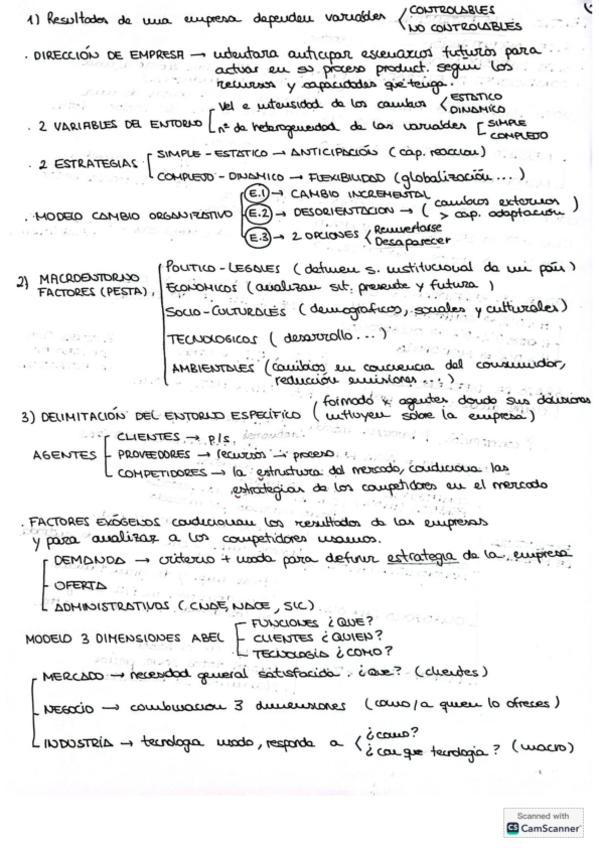 1) Resultados de una empresa dependen variables CONTROLABLES
NO CONTROLABLES
. DIRECCIÓN DE EMPRESA → intentara anticipar escenarios futuros para
actuar en su proceso product. segun los
recursos y capacidades que tenga.
. 2 VARIABLES DEL ENTORNO Vel e intensidad de los cambios ESTATICO
DINAMICO
nº de heterogeneidad de las variables SIMPLE
COMPLEJO
. 2 ESTRATEGIAS SIMPLE - ESTATICO → ANTICIPACIÓN (cap. reaccion)
COMPLEJO - DINAMICO → FLEXIBILIDAD (globalización ...)
. MODELO CAMBIO ORGANIZATIVO E.1 → CAMBIO INCREMENTAL
E.2 → DESORIENTACION → (cambios externos > cap. adaptación)
E.3 → 2 OPCIONES Reinventarse
Desaparecer
2) MACROENTORNO
FACTORES (PESTA),
POLITICO - LEGALES (definen s. institucional de un país)
ECONÓMICOS (analizan sit. presente y futura)
SOCIO - CULTURALES (demograficos, sociales y culturales)
TECNOLOGICOS (desarrollo ...)
AMBIENTALES (cambios en conciencia del consumidor,
reducción emisiones ...)
3) DELIMITACIÓN DEL ENTORNO ESPECÍFICO (formado x agentes donde sus decisiones
influyen sobre la empresa)
AGENTES CLIENTES → p/s.
PROVEEDORES → recursos → proceso.
COMPETIDORES → la estructura del mercado, condiciona las
estrategias de los competidores en el mercado
. FACTORES EXÓGENOS condicionan los resultados de las empresas
y para analizar a los competidores usamos.
DEMANDA → criterio + usado para definir estrategia de la empresa
OFERTA
ADMINISTRATIVOS (CNAE, NACE, SIC)
MODELO 3 DIMENSIONES ABEL FUNCIONES ¿QUE?
CLIENTES ¿QUIEN?
TECNOLOGÍA ¿COMO?
MERCADO → necesidad general satisfacida. ¿Que? (clientes)
NEGOCIO → combinacion 3 dimensiones (como/a quien lo ofreces)
INDUSTRÍA → tecnologia usado, responde a ¿como?
¿con que tecnología? (macro)
Scanned with
CS CamScanner